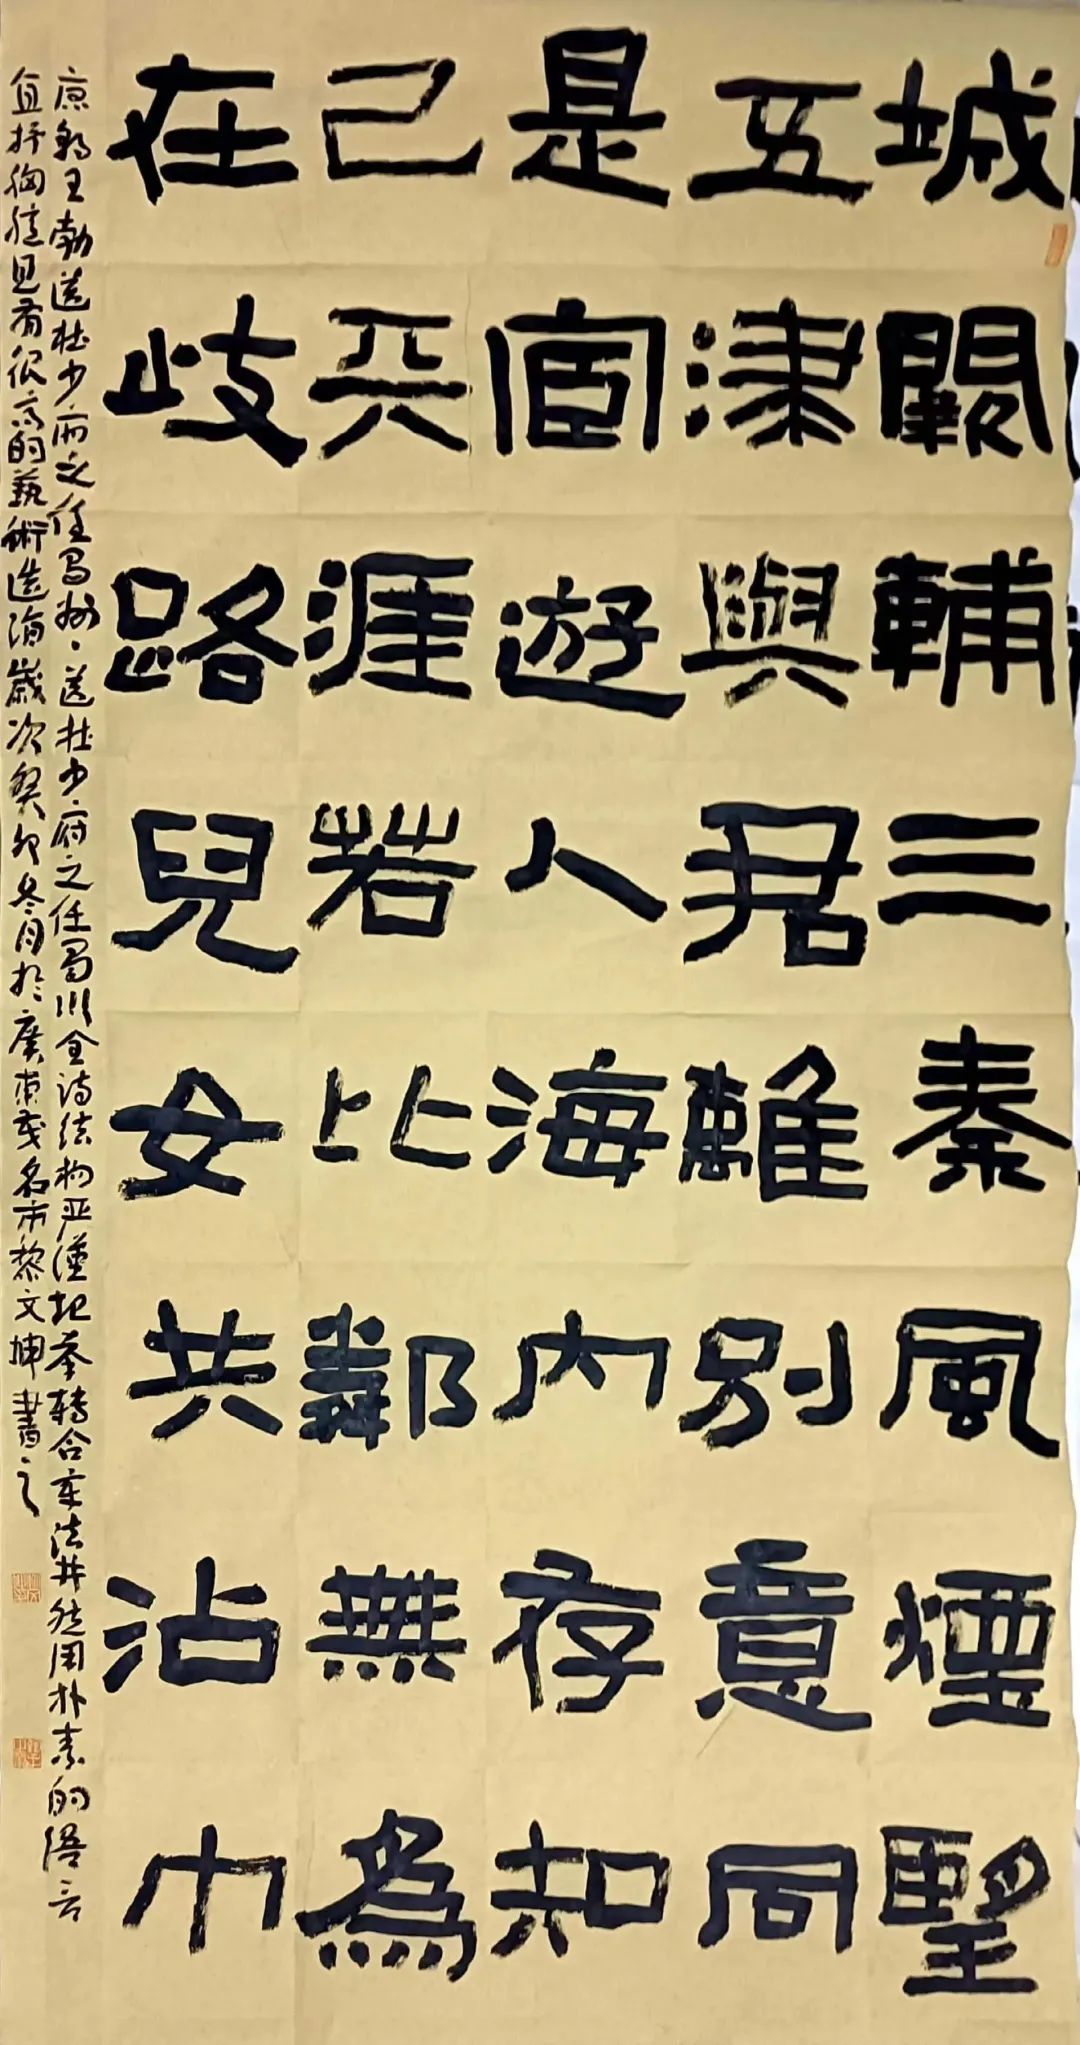 城闕輔三秦風煙望
五津與君離別意同
是宦遊人海内存知
己天涯若比鄰無為
在歧路兒女共沾巾
唐朝王勃送杜少府之任蜀州、送杜少府之任蜀川全诗结构严谨起承转合章法井然用朴素的語言
直抒胸臆具有很高的藝術造詣歲次癸卯冬月於廣東茂名市黎文坤書之